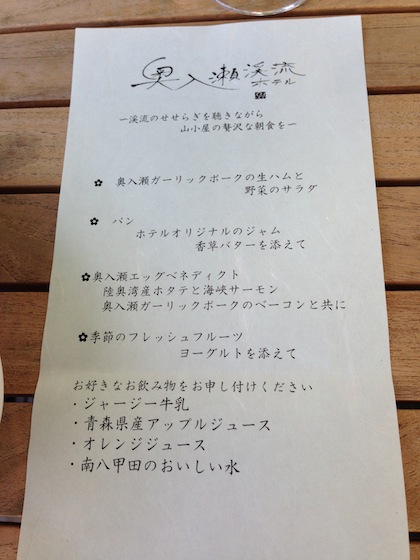 奥入瀬渓流
ホテル
～渓流のせせらぎを聴きながら
山小屋の贅沢な朝食を～
✿ 奥入瀬ガーリックポークの生ハムと
野菜のサラダ
✿ パン
ホテルオリジナルのジャム
香草バターを添えて
✿奥入瀬エッグベネディクト
陸奥湾産ホタテと海峡サーモン
奥入瀬ガーリックポークのベーコンと共に
✿季節のフレッシュフルーツ
ヨーグルトを添えて
お好きなお飲み物をお申し付けください
・ジャージー牛乳
・青森県産アップルジュース
・オレンジジュース
・南八甲田のおいしい水